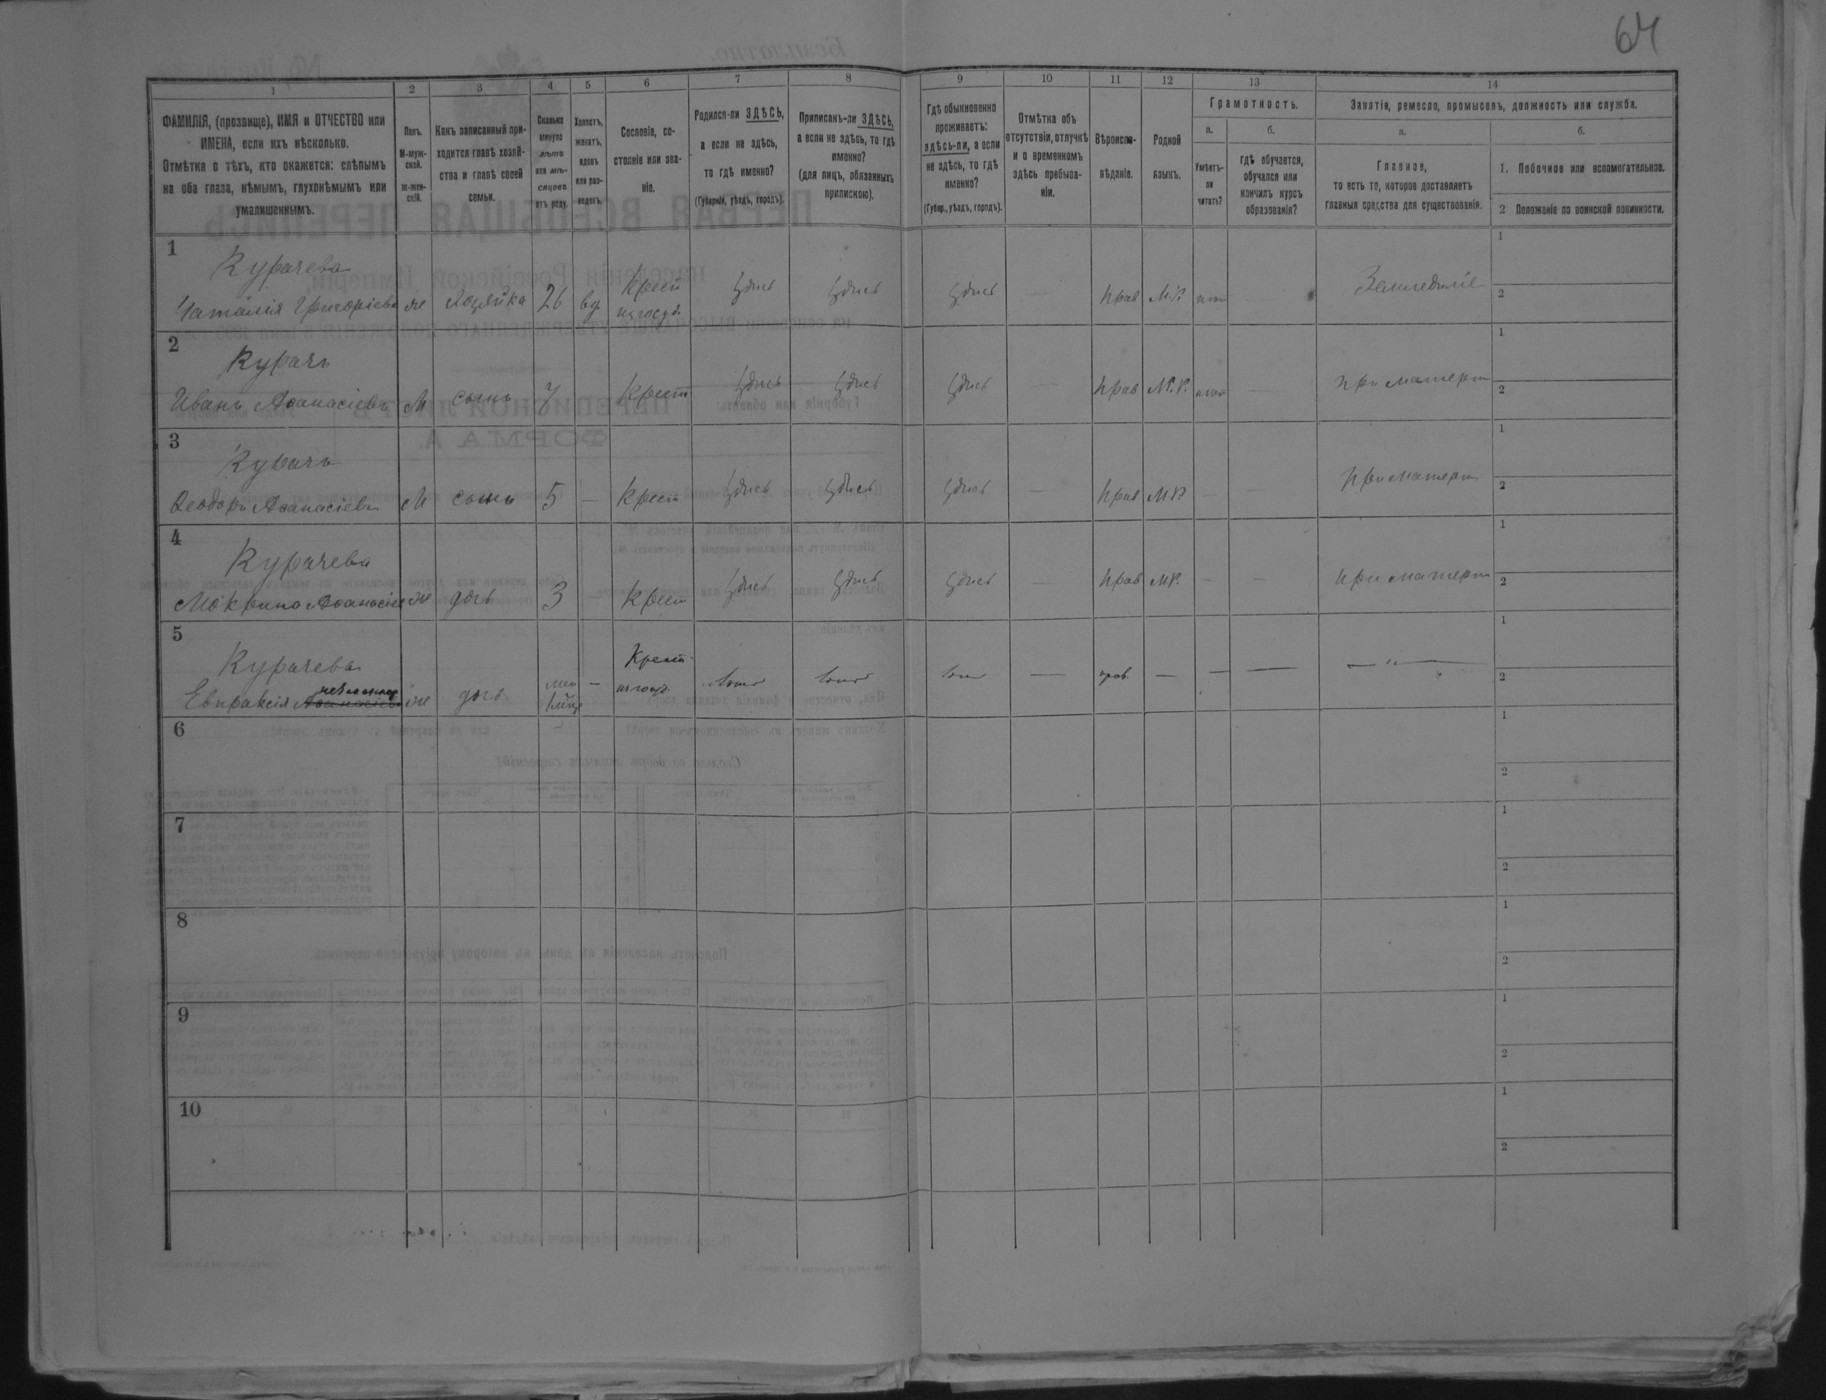 64
1 2 3 4 5 6 7 8 9 10 11 12 13 14
ФАМИЛІЯ, (прозвище), ИМЯ и ОТЧЕСТВО или
ИМЕНА, если ихъ нѣсколько.
Отмѣтка о тѣхъ, кто окажется: слѣпымъ
на оба глаза, нѣмымъ, глухонѣмымъ или
умалишеннымъ.
Полъ.
М-муж-
ской.
Ж-жен-
скій.
Какъ записанный при-
ходится главѣ хозяй-
ства и главѣ своей
семьи.
Сколько
минуло
лѣтъ
или мѣ-
сяцевъ
отъ роду.
Холостъ,
женатъ,
вдовъ
или раз-
веденъ.
Сословіе, со-
стояніе или зва-
ніе.
Родился-ли ЗДѢСЬ,
а если не здѣсь,
то гдѣ именно?
(Губернія, уѣздъ, городъ).
Приписанъ-ли ЗДѢСЬ,
а если не здѣсь, то гдѣ
именно?
(для лицъ, обязанныхъ
припискою).
Гдѣ обыкновенно
проживаетъ:
здѣсь-ли, а если
не здѣсь, то гдѣ
именно?
(Губер., уѣздъ, городъ).
Отмѣтка объ
отсутствіи, отлучкѣ
и о временномъ
здѣсь пребыва-
ніи.
Вѣроиспо-
вѣданіе.
Родной
языкъ.
Грамотность.
а.
Умѣетъ-
ли
читать?
б.
гдѣ обучается,
обучался или
кончилъ курсъ
образованія?
Занятія, ремесло, промыселъ, должность или служба.
а.
Главное,
то есть то, которое доставляетъ
главныя средства для существованія.
б.
1. Побочное или вспомогательное.
2 Положеніе по воинской повинности.
1
Курачева
Наталія Григоріева ж хозяйка 26 вд. Крест из госуд. здѣсь здѣсь здѣсь — Прав М.Р. нѣт — Земледѣліе
1
2
2
Курачъ
Иванъ Аѳанасіевъ М сынъ 7 Крест здѣсь здѣсь здѣсь — Прав М.Р. нѣт — При матери
1
2
3
Курачъ
Ѳеодоръ Аѳанасіевъ М сынъ 5 — Крест здѣсь здѣсь здѣсь — Прав М.Р. — — При матери
1
2
4
Курачева
Мокрина Аѳанасіев ж дочь 3 — Крест здѣсь здѣсь здѣсь — Прав М.Р. — — При матери
1
2
5
Курачева
Евпраксія Аѳанасіев ж дочь — Крест. из госуд. — прав. — — — — " —
1
2
6
1
2
7
1
2
8
1
2
9
1
2
10
1
2